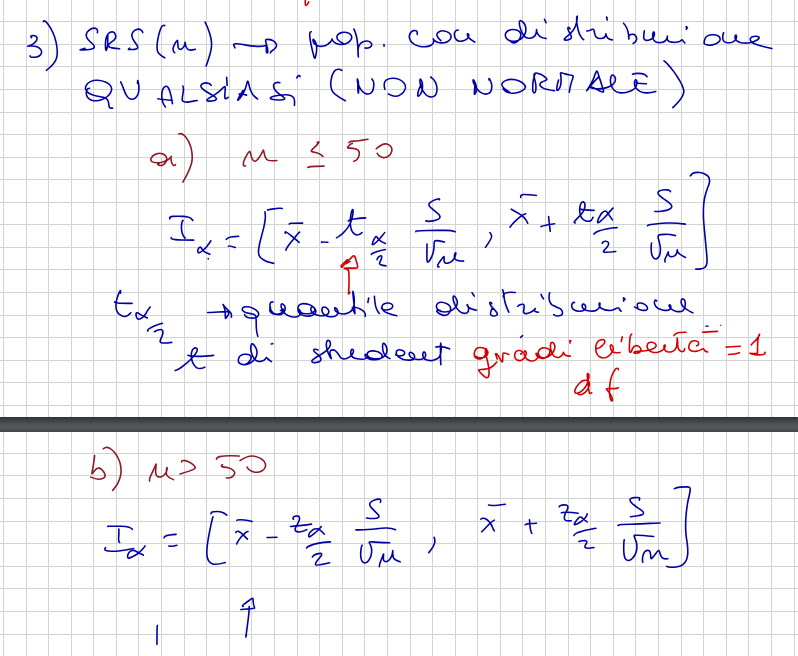 3) SRS(n) → pop. con distribuzione
QUALSIASI (NON NORMALE)
a) n ≤ 50
I_α = [x̄ - t_α/2 S/√n , x̄ + t_α/2 S/√n]
t_α/2 → quantile distribuzione
t di student gradi libertà = 1
df
b) n > 50
I_α = [x̄ - z_α/2 S/√n , x̄ + z_α/2 S/√n]